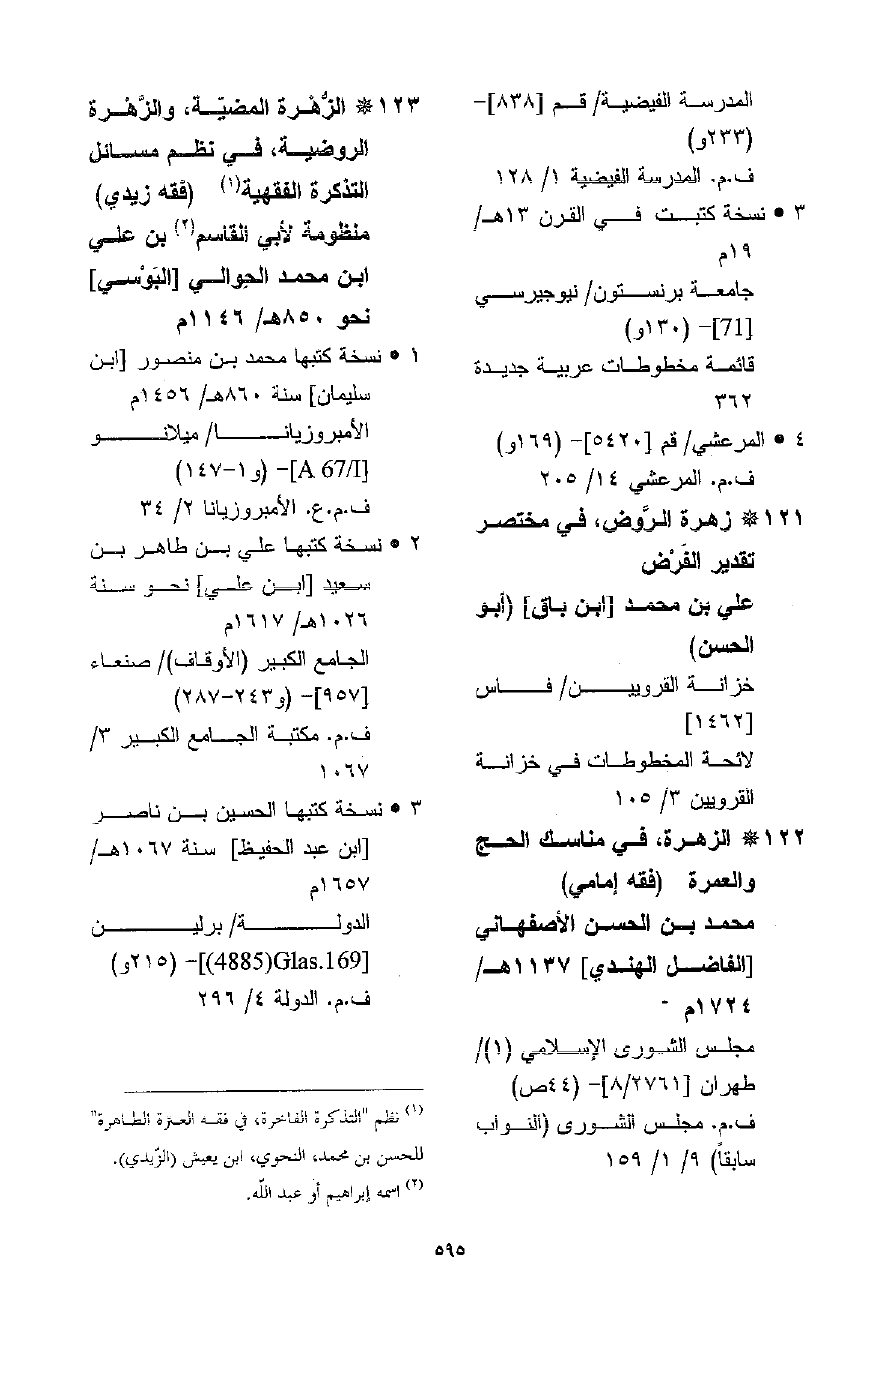 المدرسة الفيضية/ قم [٨٣٨]-
(٢٣٣و)
ف.م. المدرسة الفيضية ١/ ١٢٨
٣ • نسخة كتبت في القرن ١٣هـ/
١٩م
جامعة برنستون/ نيوجيرسي
[71]- (١٣٠و)
قائمة مخطوطات عربية جديدة
٣٦٢
٤ • المرعشي/ قم [٥٤٢٠]- (١٦٩و)
ف.م. المرعشي ١٤/ ٢٠٥
١٢١ * زهرة الرَّوض، في مختصر
تقدير الفَرْض
علي بن محمد [ابن باق] (أبو
الحسن)
خزانة القرويين/ فاس
[١٤٦٢]
لائحة المخطوطات في خزانة
القرويين ٣/ ١٠٥
١٢٢ * الزهرة، في مناسك الحج
والعمرة (فقه إمامي)
محمد بن الحسن الأصفهاني
[الفاضل الهندي] ١١٣٧هـ/
١٧٢٤م
مجلس الشورى الإسلامي (١)/
طهران [٨/٢٧٦١]- (٤٤ص)
ف.م. مجلس الشورى (النواب
سابقاً) ٩/ ١/ ١٥٩
١٢٣ * الزُّهْرة المضيّة، والزَّهْرة
الروضية، في نظم مسائل
التذكرة الفقهية(١) (فقه زيدي)
منظومة لأبي القاسم(٢) بن علي
ابن محمد الحوالي [البَوْسي]
نحو ٨٥٠هـ/ ١١٤٦م
١ • نسخة كتبها محمد بن منصور [ابن
سليمان] سنة ٨٦٠هـ/ ١٤٥٦م
الأمبروزيانا/ ميلانو
[A 67/I]- (و١-١٤٧)
ف.م.ع. الأمبروزيانا ٢/ ٣٤
٢ • نسخة كتبها علي بن طاهر بن
سعيد [ابن علي] نحو سنة
١٠٢٦هـ/ ١٦١٧م
الجامع الكبير (الأوقاف)/ صنعاء
[٩٥٧]- (و٢٤٣-٢٨٧)
ف.م. مكتبة الجامع الكبير ٣/
١٠٦٧
٣ • نسخة كتبها الحسين بن ناصر
[ابن عبد الحفيظ] سنة ١٠٦٧هـ/
١٦٥٧م
الدولة/ برلين
[4885)Glas.169)]- (٢١٥و)
ف.م. الدولة ٤/ ٢٩٦
(١) نظم "التذكرة الفاخرة، في فقه العترة الطاهرة"
للحسن بن محمد، النحوي، ابن يعيش (الزَّيدي).
(٢) اسمه إبراهيم أو عبد الله.
٥٩٥